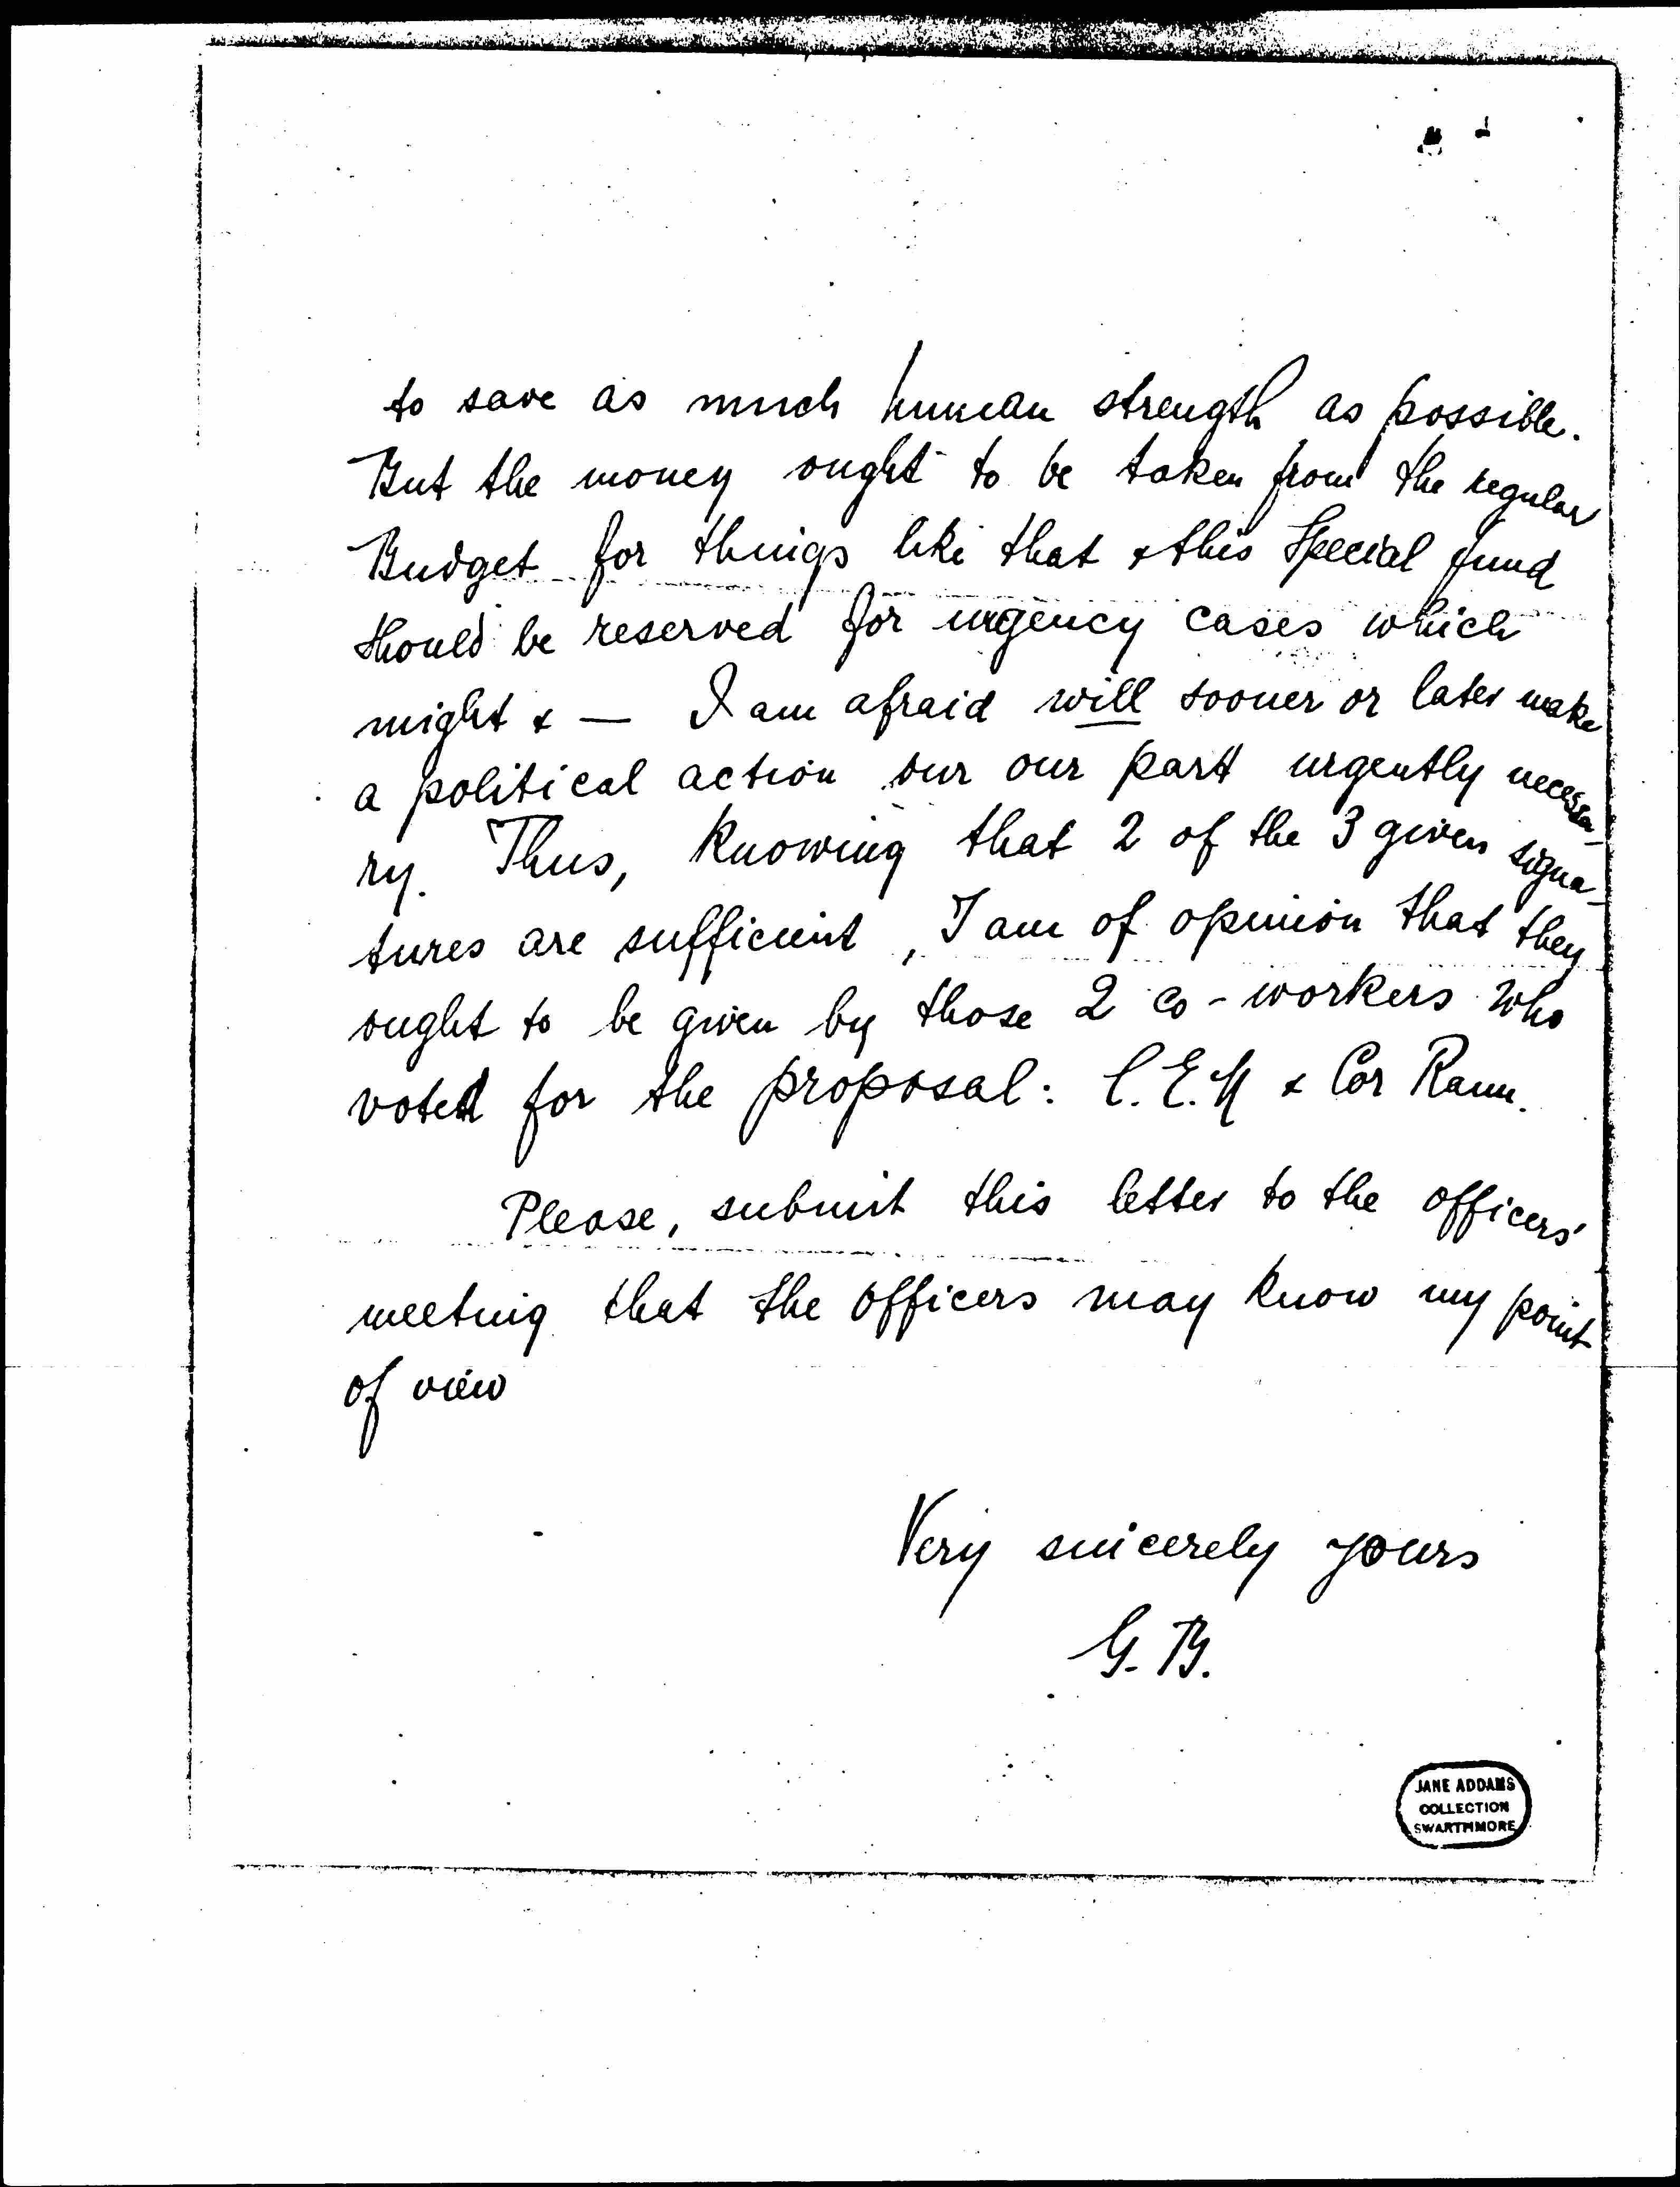 to save as much human strength as possible.
But the money ought to be taken from the regular
Budget for things like that & this Special fund
should be reserved for urgency cases which
might & — I am afraid will sooner or later make
a political action our our part urgently necessa-
ry. Thus, knowing that 2 of the 3 given signa-
tures are sufficient, I am of opinion that they
ought to be given by those 2 co-workers who
voted for the proposal: C.E.M & Cor Ram.
Please, submit this letter to the officers'
meeting that the officers may know my point
of view
Very sincerely yours
G.B.
JANE ADDAMS
COLLECTION
SWARTHMORE